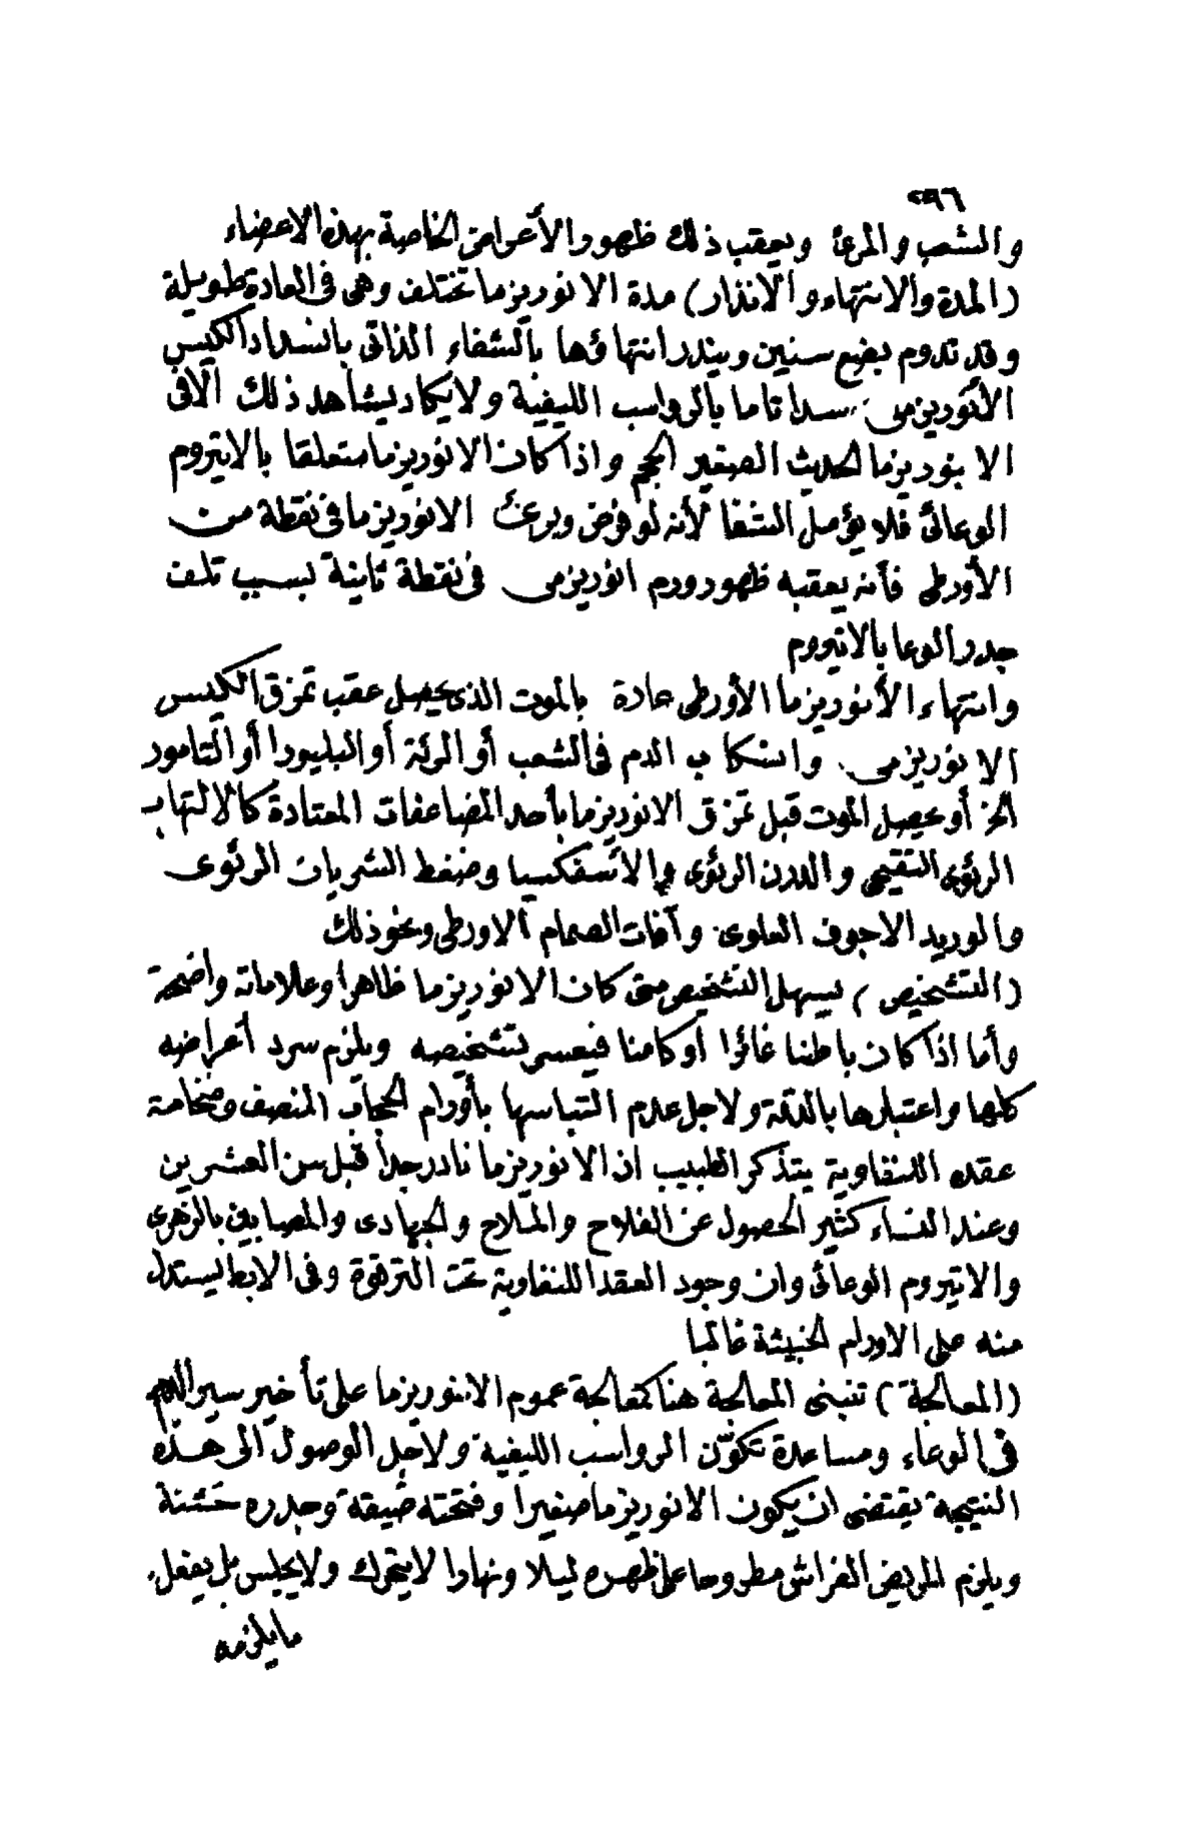 ٢٩٦
والشعب والمرئ ويعقب ذلك ظهور الأعراض الخاصة بهذه الاعضاء
(المدة والانتهاء والانذار) مدة الانوريزما تختلف وهي في العادة طويلة
وقد تدوم بضع سنين ويندر انتهاؤها بالشفاء الذاتي بانسداد الكيس
الأنوريزمي سدا تاما بالرواسب الليفية ولا يكاد يشاهد ذلك الا في
الانوريزما الحديث الصغير الحجم واذا كان الانوريزما متعلقا بالاتيروم
الوعائي فلا يؤمل الشفا لأنه لو فرض وبرئ الانوريزما في نقطة من
الأورطى فانه يعقبه ظهور ورم انوريزمى في نقطة ثانية بسبب تلف
جدر الوعا بالاتيروم
وانتهاء الأنوريزما الأورطى عادة بالموت الذي يحصل عقب تمزق الكيس
الانوريزمى وانسكاب الدم في الشعب أو الرئة أو البليورا أو التامور
الخ أو يحصل الموت قبل تمزق الانوريزما بأحد المضاعفات المعتادة كالالتهاب
الرئوى التقيحى والدرن الرئوى والاسفكسيا وضغط الشريان الرئوى
والوريد الاجوف العلوى وآفات الصمام الاورطى ونحو ذلك
(التشخيص) يسهل التشخيص متى كان الانوريزما ظاهرا وعلاماته واضحة
وأما اذا كان باطنا غائرا أو كامنا فيعسر تشخيصه ويلزم سرد أعراضه
كلها واعتبارها بالدقة ولاجل عدم التباسها بأورام الحجاب المنصف وضخامة
عقده اللنفاوية يتذكر الطبيب ان الانوريزما نادر جدا قبل سن العشرين
وعند النساء كثير الحصول عن الفلاح والملاح والجهادى والمصابين بالزهرى
والاتيروم الوعائى وان وجود العقد اللنفاوية تحت الترقوة وفى الابط يستدل
منه على الاورام الخبيثة غالبا
(المعالجة) تنبنى المعالجة هنا كمعالجة عموم الانوريزما على تأخير سير الدم
في الوعاء ومساعدة تكوّن الرواسب الليفية ولاجل الوصول الى هذه
النتيجة يقتضى ان يكون الانوريزما صغيرا وفتحته ضيقة وجدره خشنة
ويلزم المريض الفراش مطروحا على ظهره ليلا ونهارا لا يتحرك ولا يجلس بل يفعل
ما يلزمه